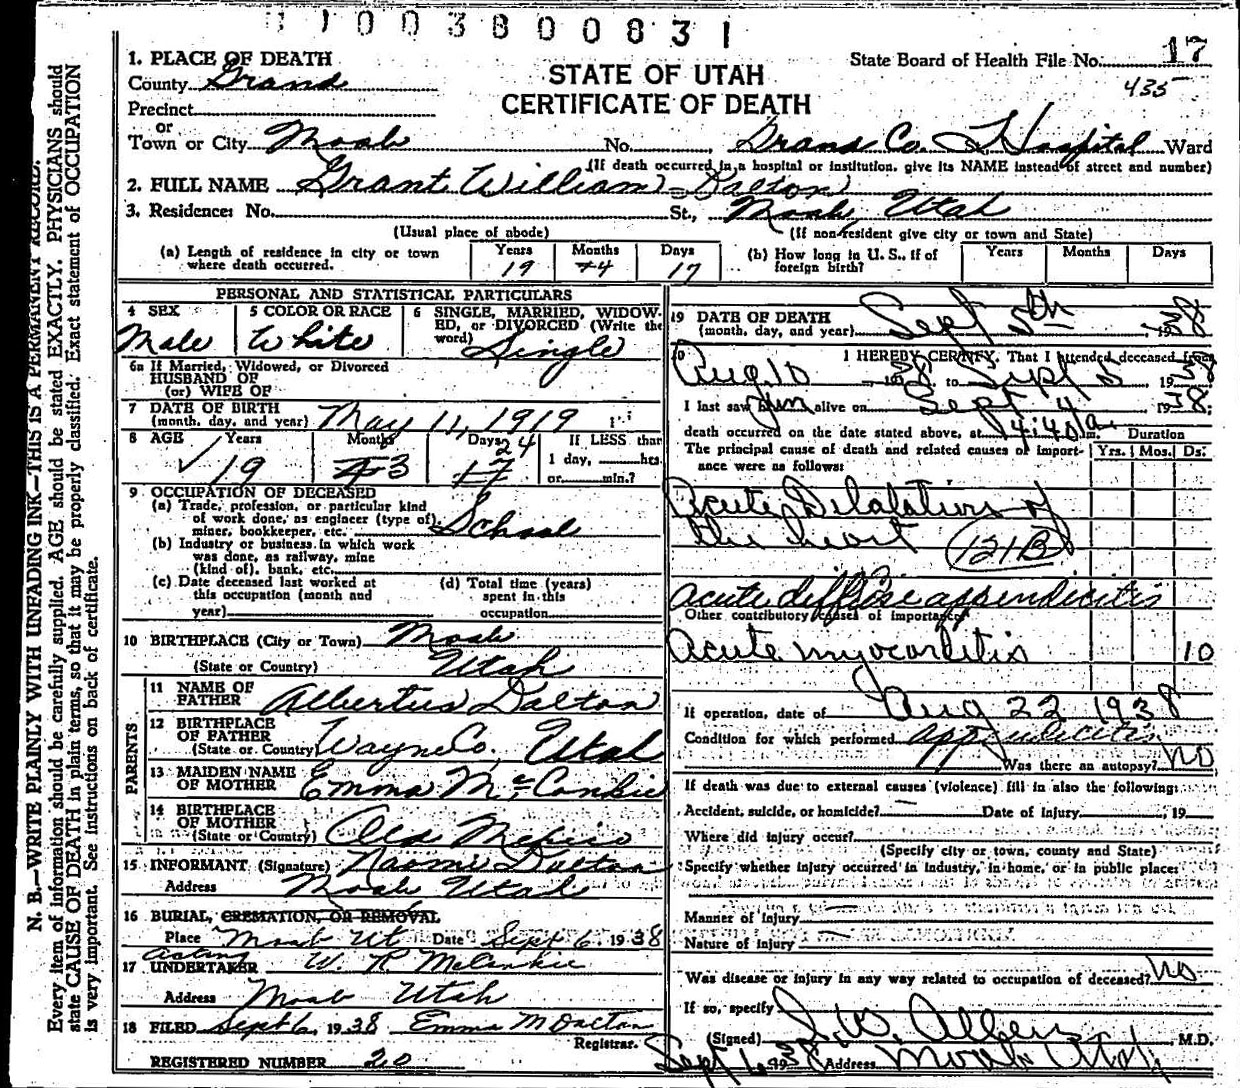 1 1 0 0 3 8 0 0 8 3 1
State Board of Health File No. 17
435
STATE OF UTAH
CERTIFICATE OF DEATH
1. PLACE OF DEATH
County Grand
Precinct
or
Town or City Moab No. Grand Co. Hospital Ward
(If death occurred in a hospital or institution, give its NAME instead of street and number)
2. FULL NAME Grant William Dalton
3. Residence: No. St., Moab Utah
(Usual place of abode) (If non-resident give city or town and State)
(a) Length of residence in city or town where death occurred. Years 19 Months 4 Days 17
(b) How long in U. S., if of foreign birth? Years Months Days
PERSONAL AND STATISTICAL PARTICULARS
4 SEX Male
5 COLOR OR RACE White
6 SINGLE, MARRIED, WIDOWED, or DIVORCED (Write the word) Single
6a If Married, Widowed, or Divorced
HUSBAND OF
(or) WIFE OF
7 DATE OF BIRTH
(month, day, and year) May 11, 1919
8 AGE Years 19 Months 3 Days 24 17
If LESS than
1 day, hrs.
or min.?
9 OCCUPATION OF DECEASED
(a) Trade, profession, or particular kind
of work done, as engineer (type of),
miner, bookkeeper, etc. School
(b) Industry or business in which work
was done, as railway, mine
(kind of), bank, etc.
(c) Date deceased last worked at
this occupation (month and
year)
(d) Total time (years)
spent in this
occupation
10 BIRTHPLACE (City or Town) Moab
(State or Country) Utah
PARENTS
11 NAME OF
FATHER Albertus Dalton
12 BIRTHPLACE
OF FATHER
(State or Country) Wayne Co. Utah
13 MAIDEN NAME
OF MOTHER Emma McConkie
14 BIRTHPLACE
OF MOTHER
(State or Country) Old Mexico
15 INFORMANT (Signature) Naomi Dalton
Address Moab Utah
16 BURIAL, CREMATION, OR REMOVAL
Place Moab Ut Date Sept 6, 1938
Acting
17 UNDERTAKER W. R. McConkie
Address Moab Utah
18 FILED Sept 6, 1938 Emma M Dalton
Registrar.
REGISTERED NUMBER 20
19 DATE OF DEATH
(month, day, and year) Sept 5th 1938
20 I HEREBY CERTIFY, That I attended deceased from
Aug 10 1938 to Sept 5 1938
I last saw him alive on Sept 4 1938;
death occurred on the date stated above, at 4:40 a. m. Duration
The principal cause of death and related causes of importance were as follows: Yrs. Mos. Ds.
Acute Dilatation of
the heart 121B
acute diffuse appendicitis
Other contributory causes of importance:
Acute myocarditis 10
If operation, date of Aug 22 1938
Condition for which performed appendicitis
Was there an autopsy? NO
If death was due to external causes (violence) fill in also the following:
Accident, suicide, or homicide? Date of injury 19
Where did injury occur?
(Specify city or town, county and State)
Specify whether injury occurred in industry, in home, or in public place:
Manner of Injury
Nature of injury
Was disease or injury in any way related to occupation of deceased? No
If so, specify
(Signed) J. W. Allen M.D.
Sept 6 1938 Address Moab Utah
N. B.—WRITE PLAINLY WITH UNFADING INK—THIS IS A PERMANENT RECORD.
Every item of information should be carefully supplied. AGE should be stated EXACTLY. PHYSICIANS should
state CAUSE OF DEATH in plain terms, so that it may be properly classified. Exact statement of OCCUPATION
is very important. See instructions on back of certificate.